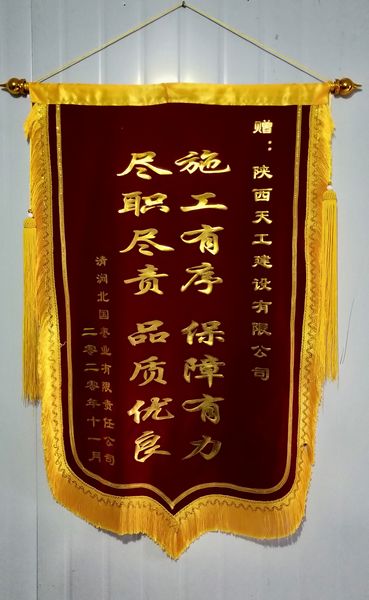 赠：陕西天工建设有限公司
施工有序 保障有力
尽职尽责 品质优良
清涧北国枣业有限责任公司
二零二零年十一月